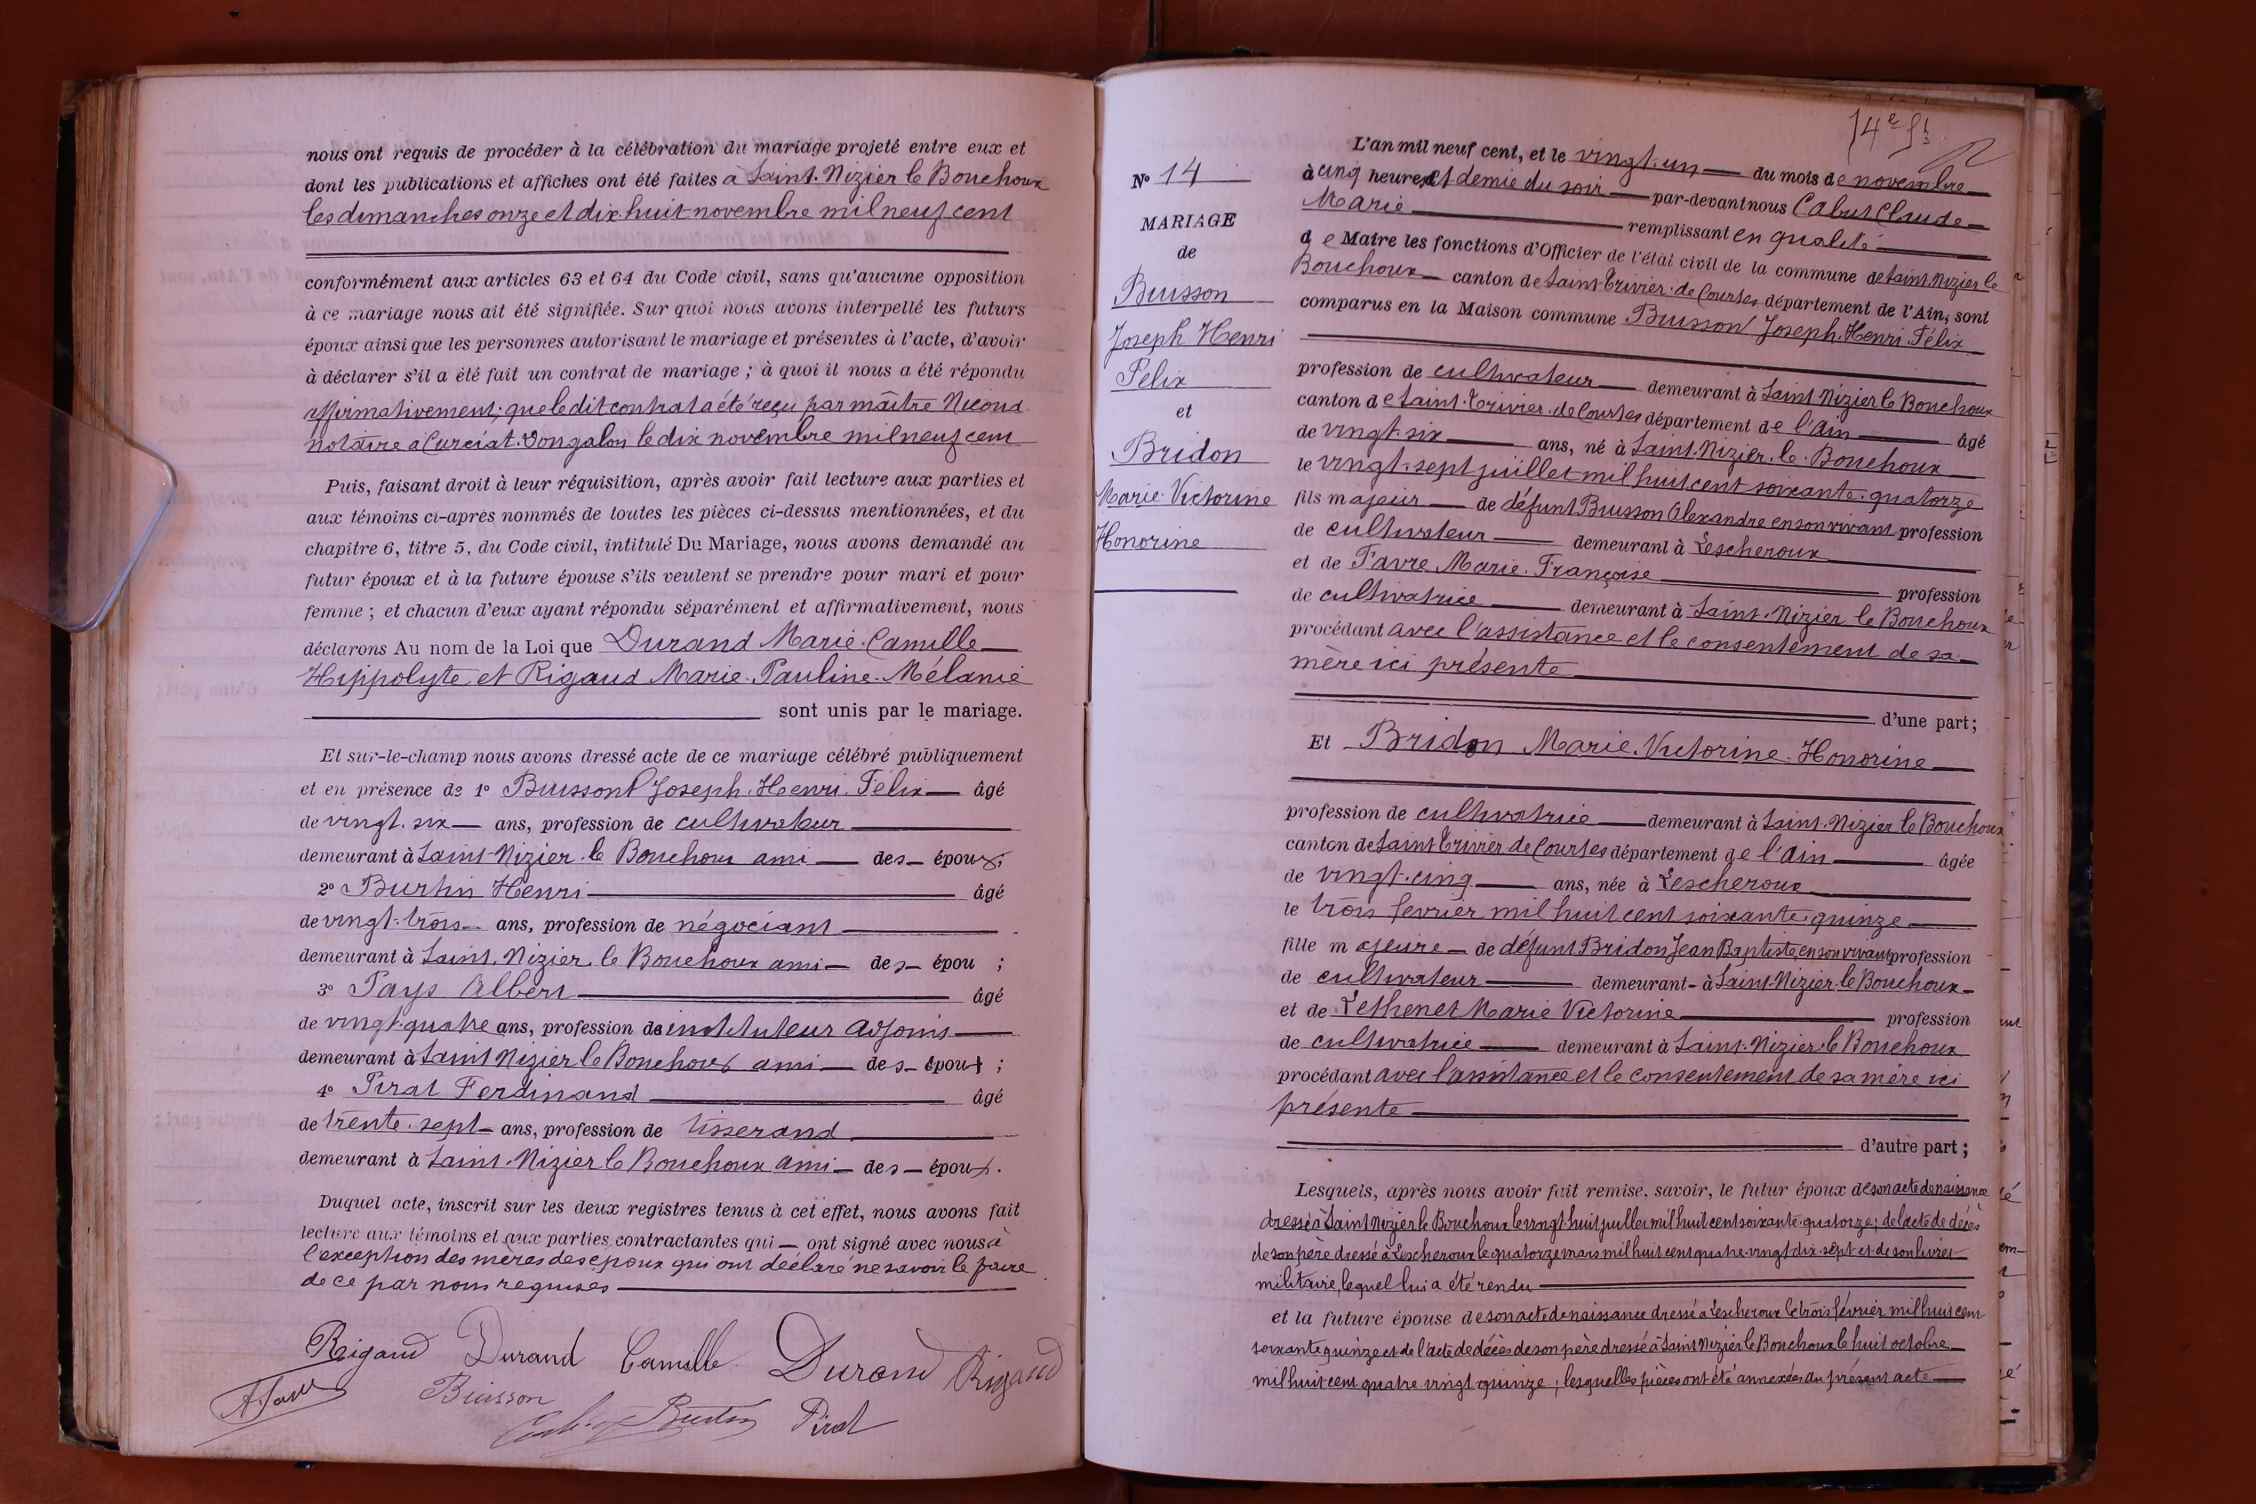 nous ont requis de procéder à la célébration du mariage projeté entre eux et
dont les publications et affiches ont été faites à Saint-Nizier le Bouchoux
les dimanches onze et dix huit novembre mil neuf cent
conformément aux articles 63 et 64 du Code civil, sans qu'aucune opposition
à ce mariage nous ait été signifiée. Sur quoi nous avons interpellé les futurs
époux ainsi que les personnes autorisant le mariage et présentes à l'acte, d'avoir
à déclarer s'il a été fait un contrat de mariage ; à quoi il nous a été répondu
affirmativement; que le dit contrat a été reçu par maître Nicoud
notaire à Curciat-Dongalon le dix novembre mil neuf cent
Puis, faisant droit à leur réquisition, après avoir fait lecture aux parties et
aux témoins ci-après nommés de toutes les pièces ci-dessus mentionnées, et du
chapitre 6, titre 5, du Code civil, intitulé Du Mariage, nous avons demandé au
futur époux et à la future épouse s'ils veulent se prendre pour mari et pour
femme ; et chacun d'eux ayant répondu séparément et affirmativement, nous
déclarons Au nom de la Loi que Durand Marie-Camille
Hippolyte et Rigaud Marie-Pauline-Mélanie
sont unis par le mariage.
Et sur-le-champ nous avons dressé acte de ce mariage célébré publiquement
et en présence de 1° Buisson Joseph-Henri-Félix âgé
de vingt-six ans, profession de cultivateur
demeurant à Saint-Nizier-le Bouchoux ami des époux;
2° Burtin Henri âgé
de vingt-trois ans, profession de négociant
demeurant à Saint-Nizier-le Bouchoux ami des épou ;
3° Pays Albert âgé
de vingt-quatre ans, profession de instituteur adjoint
demeurant à Saint Nizier le Bouchoux ami des époux ;
4° Pirat Ferdinand âgé
de trente-sept ans, profession de tisserand
demeurant à Saint-Nizier le Bouchoux ami des époux.
Duquel acte, inscrit sur les deux registres tenus à cet effet, nous avons fait
lecture aux témoins et aux parties contractantes qui ont signé avec nous à
l'exception des mères des époux qui ont déclaré ne savoir le faire
de ce par nous requises
Rigaud Durand Camille Durand Rigaud
Buisson
Burtin Pirat
14e ft
N° 14
MARIAGE
de
Buisson
Joseph Henri
Félix
et
Bridon
Marie-Victorine
Honorine
L'an mil neuf cent, et le vingt-un du mois de novembre
à cinq heures et demie du soir par-devant nous Cabut Claude
Marie remplissant en qualité
de Maire les fonctions d'Officier de l'état civil de la commune de Saint-Nizier le
Bouchoux canton de Saint-Trivier-de Courtes, département de l'Ain, sont
comparus en la Maison commune Buisson Joseph-Henri-Félix
profession de cultivateur demeurant à Saint Nizier le Bouchoux
canton de Saint-Trivier-de Courtes département de l'Ain âgé
de vingt-six ans, né à Saint-Nizier-le-Bouchoux
le vingt-sept juillet mil huit cent soixante-quatorze
fils majeur de défunt Buisson Alexandre en son vivant profession
de cultivateur demeurant à Lescheroux
et de Favre Marie-Françoise profession
de cultivatrice demeurant à Saint-Nizier le Bouchoux
procédant avec l'assistance et le consentement de sa
mère ici présente
d'une part ;
Et Bridon Marie-Victorine-Honorine
profession de cultivatrice demeurant à Saint-Nizier le Bouchoux
canton de Saint Trivier de Courtes département de l'Ain âgée
de vingt-cinq ans, née à Lescheroux
le trois février mil huit cent soixante-quinze
fille majeure de défunt Bridon Jean Baptiste, en son vivant profession
de cultivateur demeurant à Saint-Nizier-le Bouchoux
et de Lethenet Marie Victorine profession
de cultivatrice demeurant à Saint-Nizier-le Bouchoux
procédant avec l'assistance et le consentement de sa mère ici
présente
d'autre part ;
Lesquels, après nous avoir fait remise, savoir, le futur époux de son acte de naissance
dressé à Saint Nizier le Bouchoux le vingt-huit juillet mil huit cent soixante-quatorze; de l'acte de décès
de son père dressé à Lescheroux le quatorze mars mil huit cent quatre-vingt dix-sept et de son livret
militaire, lequel lui a été rendu
et la future épouse de son acte de naissance dressé à Lescheroux le trois février mil huit cent
soixante quinze et de l'acte de décès de son père dressé à Saint Nizier le Bouchoux le huit octobre
mil huit cent quatre vingt quinze ; lesquelles pièces ont été annexées au présent acte